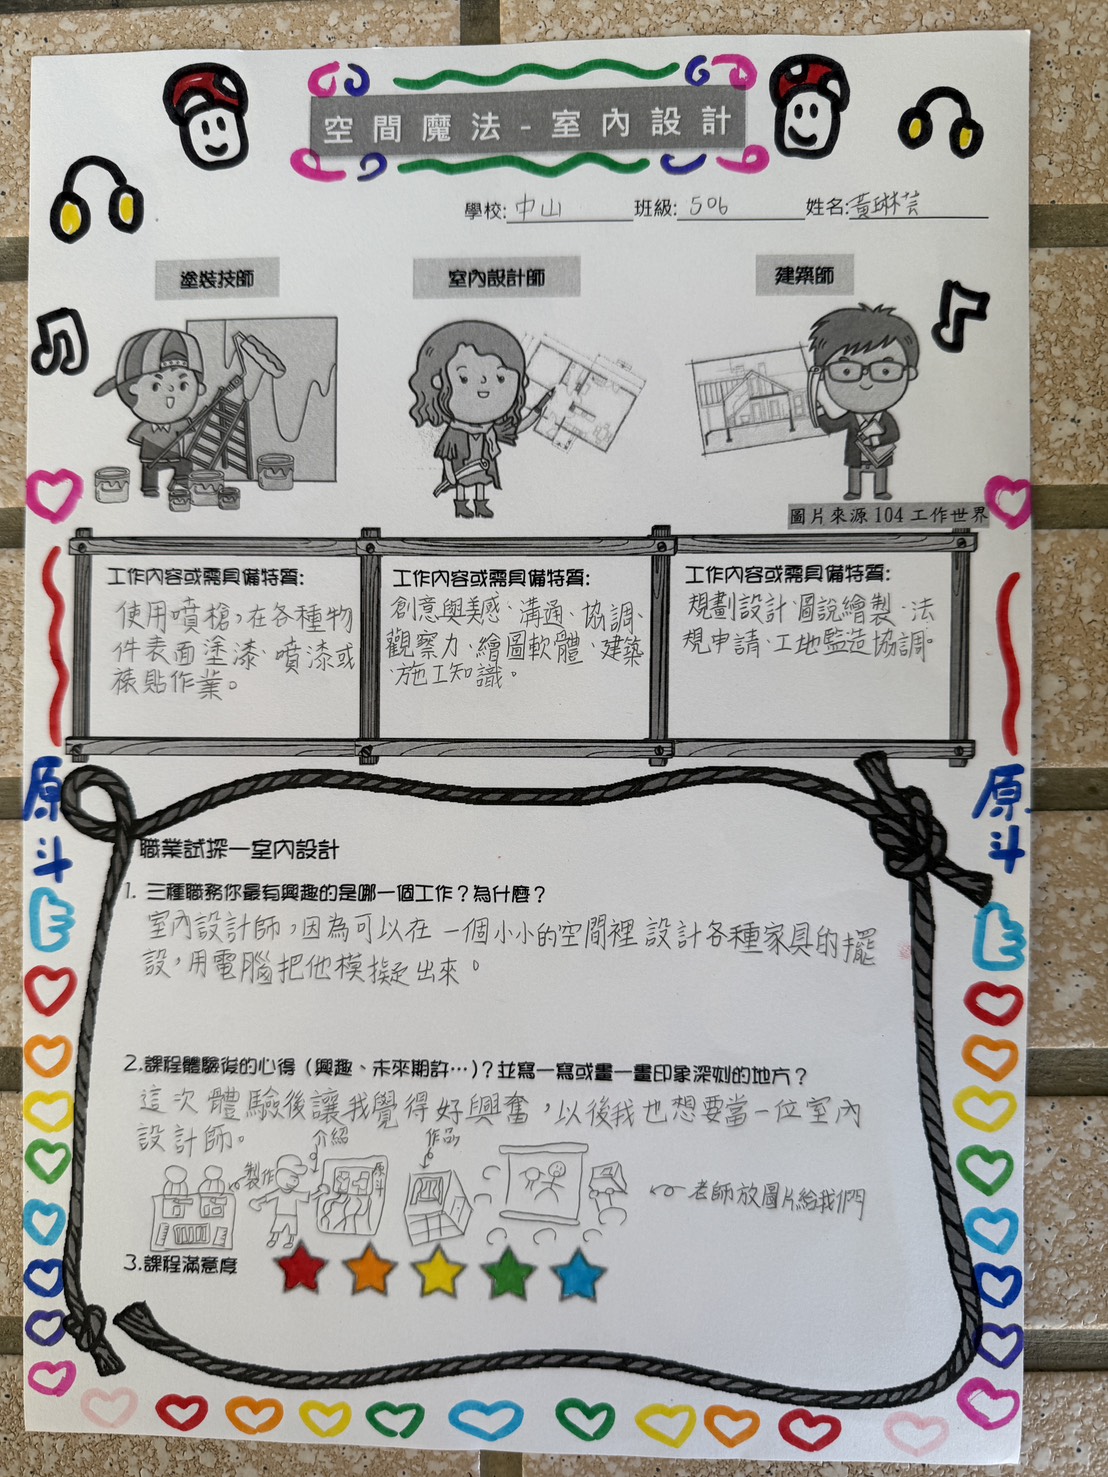 空間魔法-室內設計
學校:中山 班級:506 姓名:黃琳芸
塗裝技師
室內設計師
建築師
圖片來源104工作世界
工作內容或需具備特質:
使用噴槍,在各種物
件表面塗漆、噴漆或
裱貼作業。
工作內容或需具備特質:
創意與美感、溝通、協調、
觀察力、繪圖軟體、建築
施工知識。
工作內容或需具備特質:
規劃設計、圖說繪製、法
規申請、工地監造協調。
原斗
原斗
職業試探—室內設計
1. 三種職務你最有興趣的是哪一個工作?為什麼?
室內設計師,因為可以在一個小小的空間裡設計各種家具的擺
設,用電腦把他模擬出來。
2.課程體驗後的心得(興趣、未來期許…)?並寫一寫或畫一畫印象深刻的地方?
這次體驗後讓我覺得好興奮,以後我也想要當一位室內
設計師。
製作
介紹
原斗
作品
老師放圖片給我們
3.課程滿意度